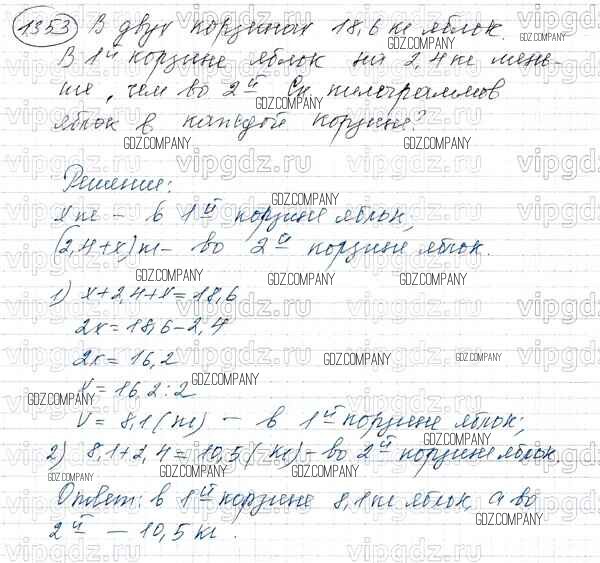 1353 В двух корзинах 18,6 кг яблок.
В 1й корзине яблок на 2,4 кг мень-
ше, чем во 2й. Ск. килограммов
яблок в каждой корзине?
Решение:
x кг – в 1й корзине яблок;
(2,4+x) кг – во 2й корзине яблок.
1) x+2,4+x=18,6
2x=18,6-2,4
2x=16,2
x=16,2:2
x=8,1(кг) – в 1й корзине яблок;
2) 8,1+2,4=10,5(кг) – во 2й корзине яблок.
Ответ: в 1й корзине 8,1 кг яблок, а во
2й – 10,5 кг.
GDZ.COMPANY
vipgdz.ru